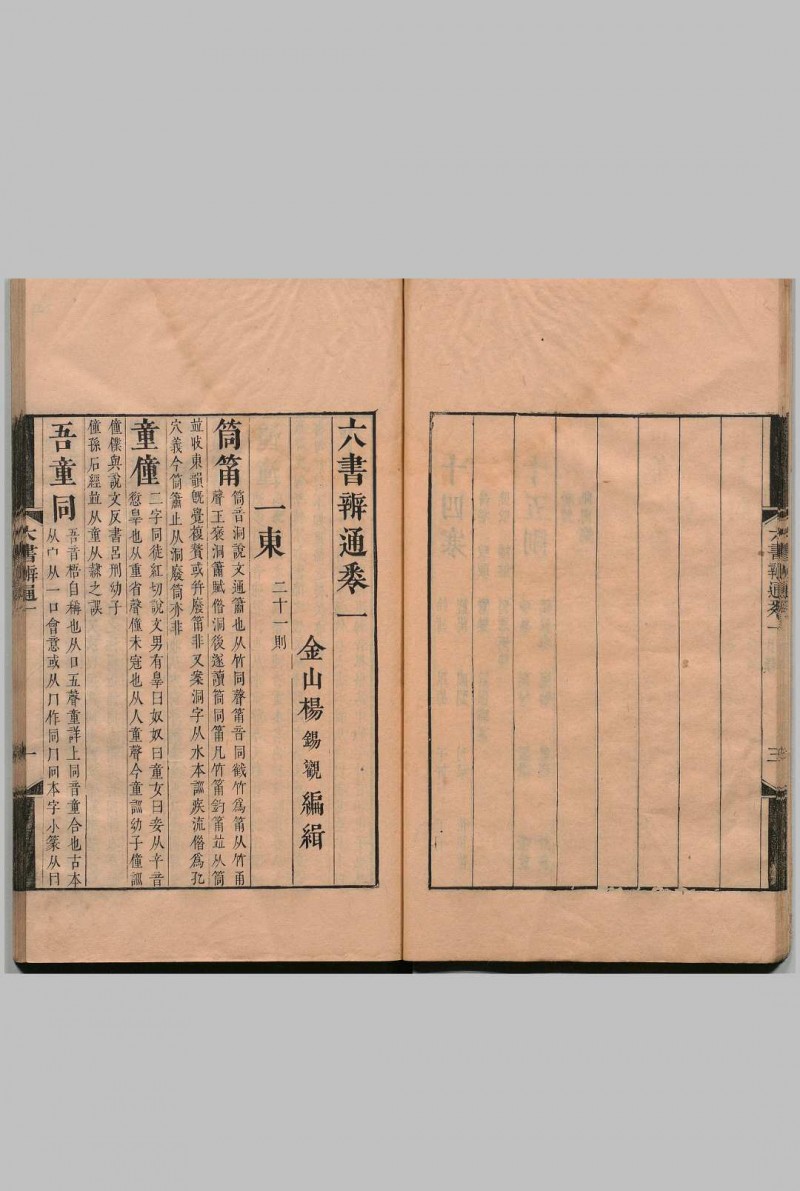 六書辧通卷一
三
六書辧通卷一
金山楊錫觀編緝
一東 二十一則
筒筩 筒音洞說文通簫也从竹同聲筩音同㦸竹爲筩从竹甬
聲王襃洞簫賦俗洞後遂讀筒同筩凡竹筩釣筩竝从筒
竝收東韻旣覺複贅或幷廢筩非又案洞字从水本謳疾流俗爲孔
穴義今筒簫止从洞廢筒亦非
童僮 二字同徒紅切說文男有辠曰奴奴曰童女曰妾从䇂音
愆辠也从重省聲僮未冠也从人童聲今童謳幼子僮謳
僮僕與說文反書呂刑幼子
僮孫石經竝从童从隸之誤
吾童同 吾音梧自稱也从口五聲童詳上同音童合也古本
从宀从一口會意或从冂作同冂同本字小篆从冃
六書辧通一
一